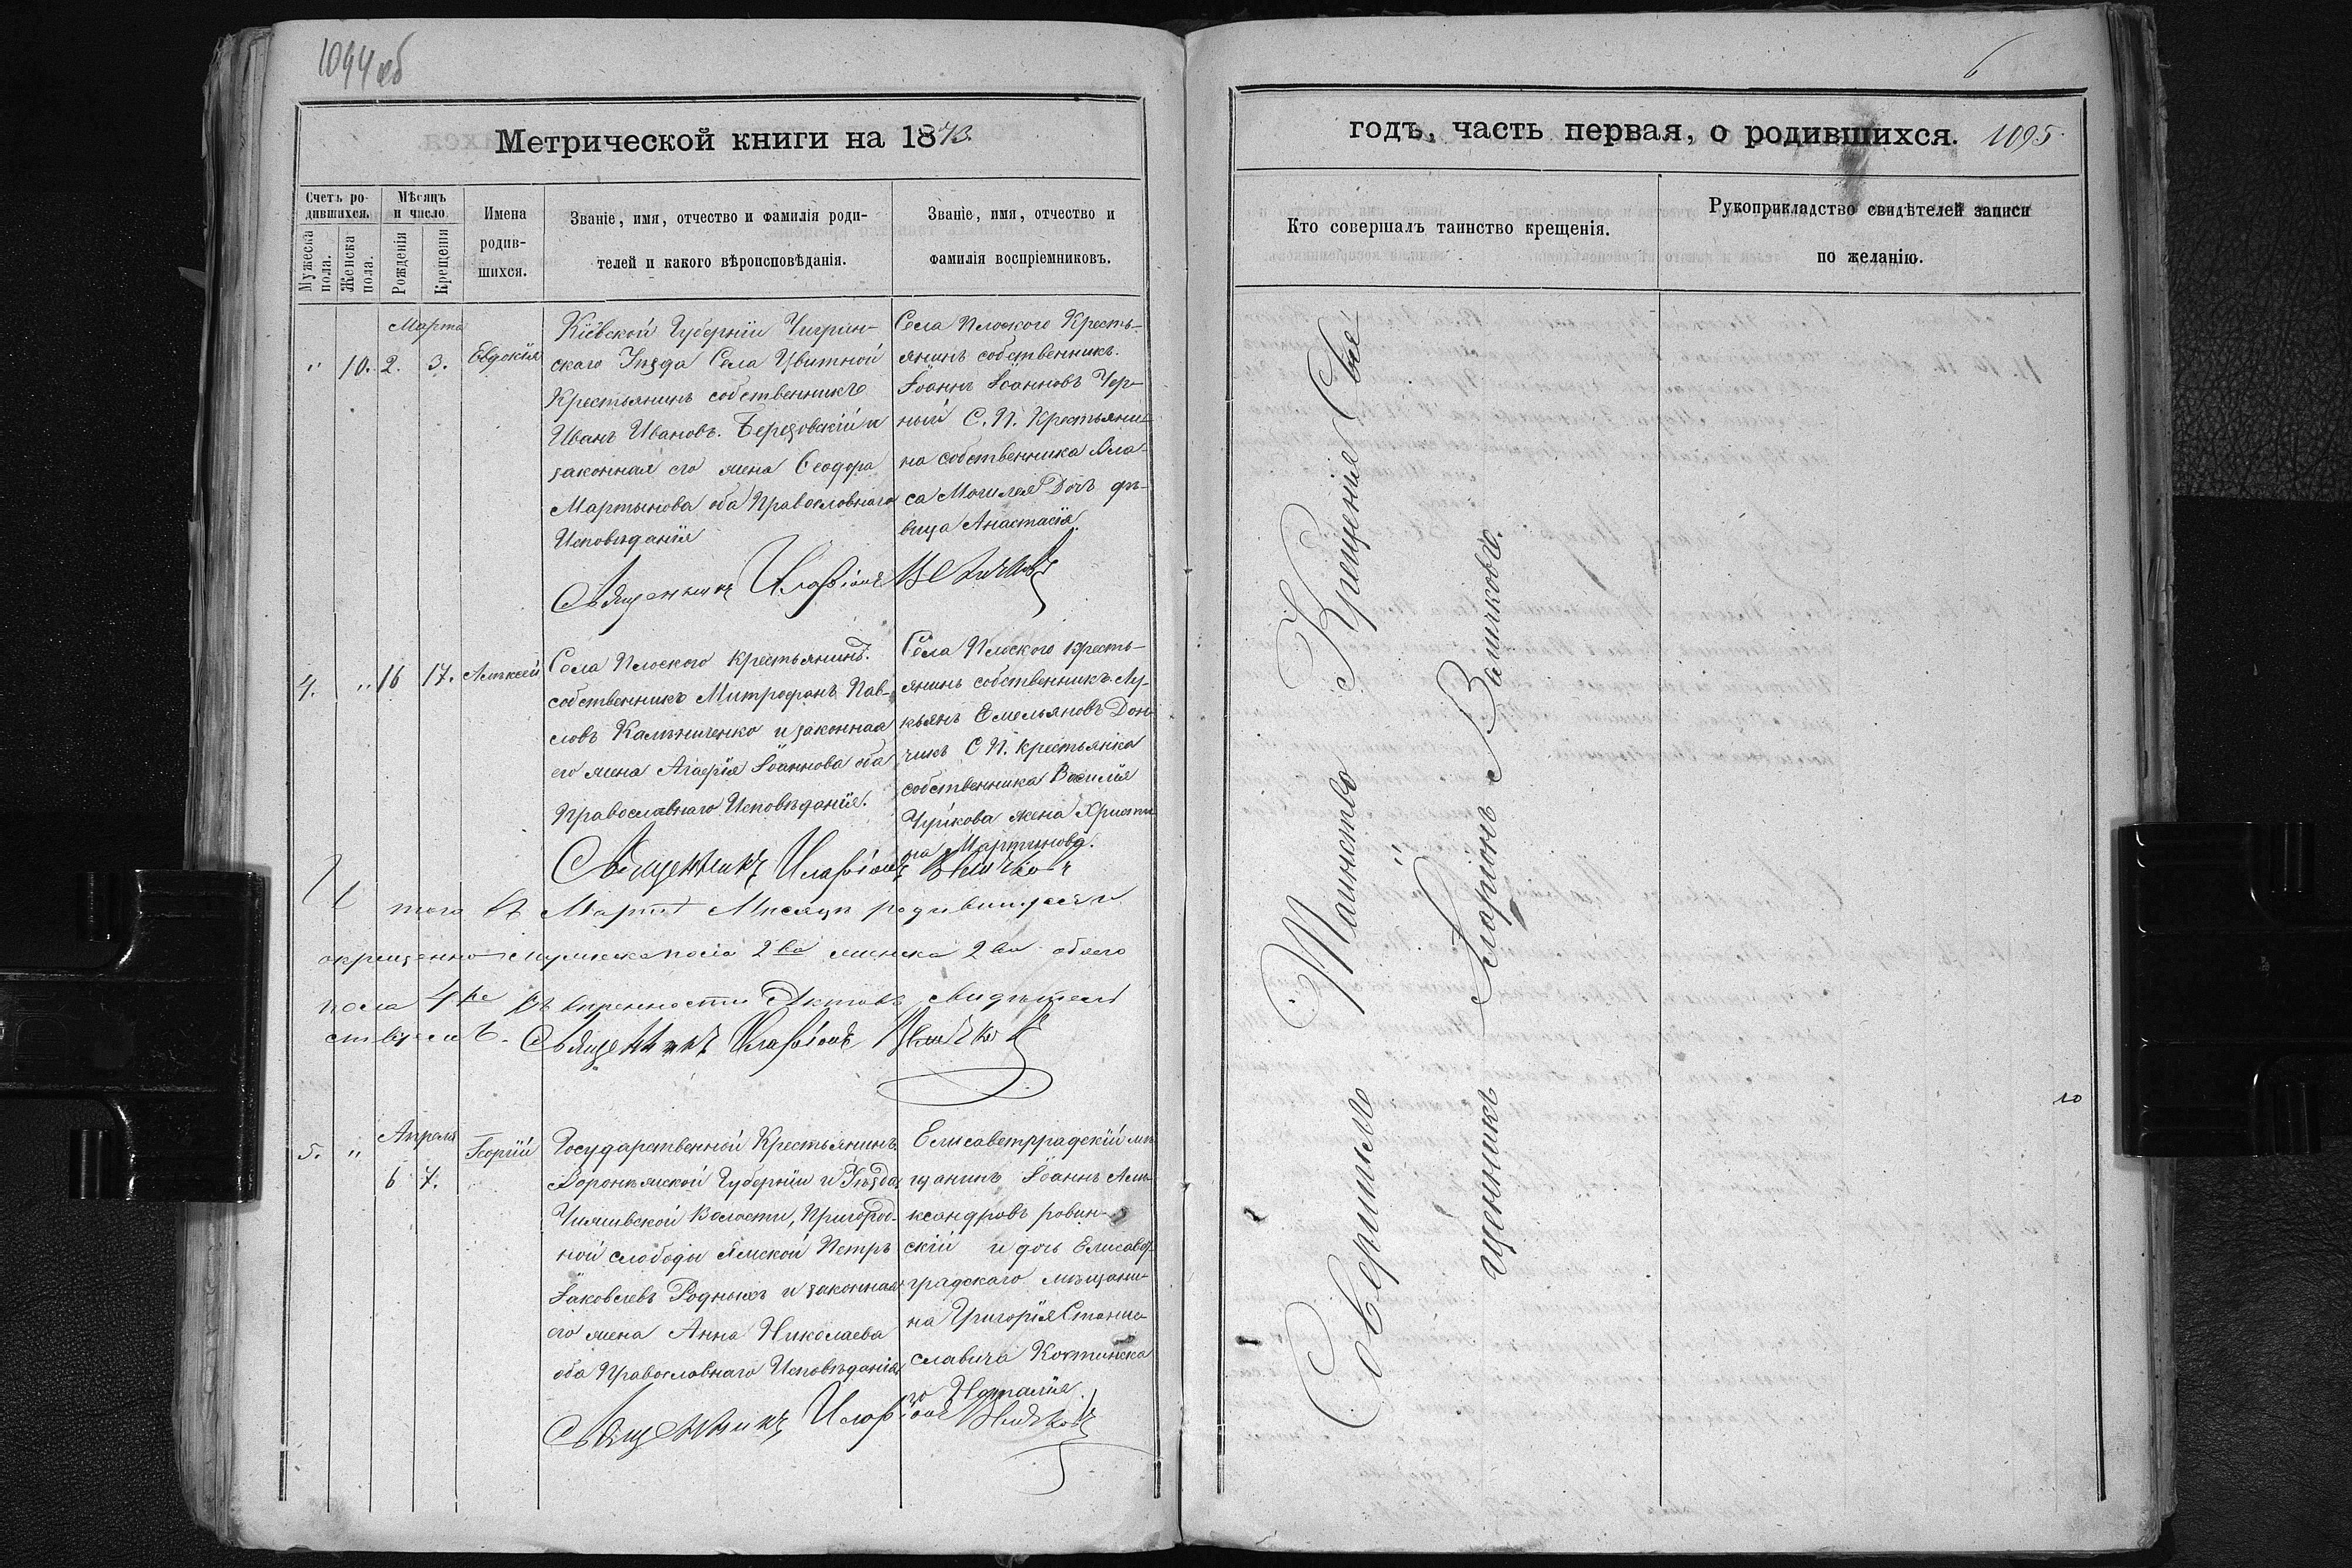 1094 об
Метрической книги на 1873
Счетъ ро-
дившихся.
Мужеска
пола.
Женска
пола.
Мѣсяцъ
и число
Рожденія
Крещенія
Имена
родив-
шихся.
Званіе, имя, отчество и фамилія роди-
телей и какого вѣроисповѣданія.
Званіе, имя, отчество и
фамилія воспріемниковъ.
Марта
" 10. 2. 3. Евдокія
Кіевской Губерніи Чигрин-
скаго Уѣзда Села Цвитной
Крестьянинъ собственникъ
Иванъ Ивановъ. Березовскій и
законная его жена Ѳеодора
Мартынова оба Православнаго
Исповѣданія
Села Плоского Кресть-
янинъ собственникъ.
Іоаннъ Іоанновъ Чер-
ный С. П. Крестьяни-
на собственника Вла-
са Могилея Дочь дѣ-
вица Анастасія
Священникъ Иларіонъ
4. " 16 17. Алексѣй
Села Плоского Крестьянинъ.
собственникъ Митрофанъ Пав-
ловъ Калѣниченко и законная
его жена Агафія Іоаннова оба
Православнаго Исповѣданія.
Села Плоского Кресть-
янинъ собственникъ Лу-
кьянъ Омельяновъ Дон-
чикъ С П. крестьянка
собственника Василія
Чурікова жена Христи
на Мартинова.
Священникъ Иларіонъ
И
того въ Мартѣ Мѣсяцѣ родившихся и
окрещенно мужеска пола 2ва женска 2ва обоего
пола 4ре въ вѣрности Актовъ свидѣтель
ствуемъ. Священникъ Иларіонъ
Апреля
5. " 6 7. Георгій
Государственной Крестьянинъ
Воронежской Губерніи и Уѣзда,
Чижевской Волости, Пригород-
ной слободы Ямской Петръ
Іаковлевъ Родныхъ и законная
его жена Анна Николаева
оба Православнаго Исповѣданія
Елисаветградскій мѣ
щанинъ Іоаннъ Але-
ксандровъ ровин-
скій и дочь Елисавет-
градскаго мѣщани-
на Григорія Стани-
славича
го Наталія.
Священникъ Иларіонъ
6
годъ, часть первая, о родившихся. 1095
Кто совершалъ таинство крещенія.
Рукоприкладство свидѣтелей записи
по желанію.
Совершилъ Таинство Крещенія Свя
щенникъ Іларіонъ Величковъ.